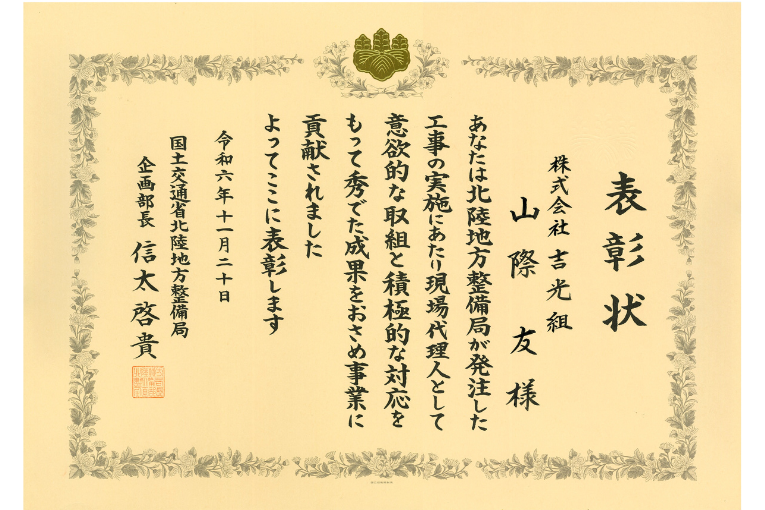 表彰状
株式会社 吉光組
山際友様
あなたは北陸地方整備局が発注した
工事の実施にあたり現場代理人として
意欲的な取組と積極的な対応を
もって秀でた成果をおさめ事業に
貢献されました
よってここに表彰します
令和六年十一月二十日
国土交通省北陸地方整備局
企画部長 信太啓貴